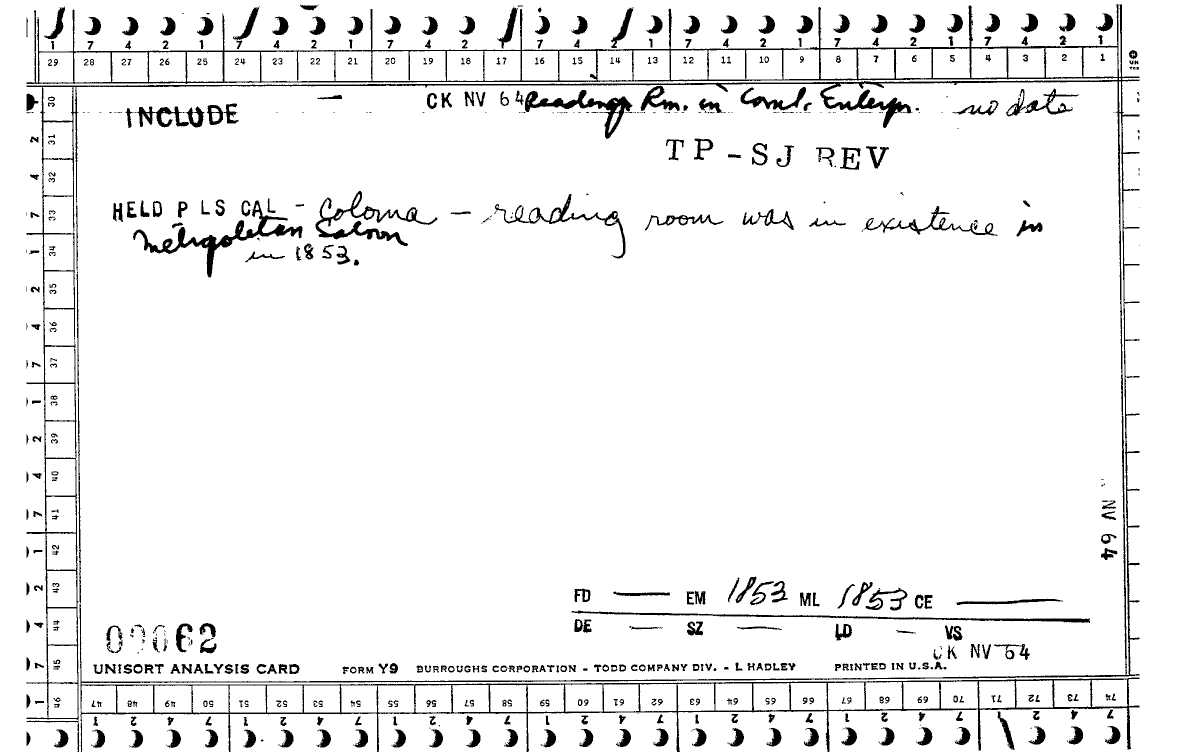 1 7 4 2 1 7 4 2 1 7 4 2 1 7 4 2 1 7 4 2 1 7 4 2 1 7 4 2 1
29 28 27 26 25 24 23 22 21 20 19 18 17 16 15 14 13 12 11 10 9 8 7 6 5 4 3 2 1
INCLUDE — CK NV 64 Readings Rm. in Coml. Enterpr. no date
TP-SJ REV
HELD P LS CAL - Coloma - reading room was in existence in
Metropolitan Saloon
in 1853.
30
2 31
4 32
7 33
1 34
2 35
4 36
7 37
1 38
2 39
4 40
7 41
1 42
2 43
4 44
7 45
1 46
NV 64
FD — EM 1853 ML 1853 CE —
DE — SZ — LD — VS
CK NV 64
09062
UNISORT ANALYSIS CARD FORM Y9 BURROUGHS CORPORATION - TODD COMPANY DIV. - L HADLEY PRINTED IN U.S.A.
47 48 49 50 51 52 53 54 55 56 57 58 59 60 61 62 63 64 65 66 67 68 69 70 71 72 73 74
1 2 4 7 1 2 4 7 1 2 4 7 1 2 4 7 1 2 4 7 1 2 4 7 1 2 4 7